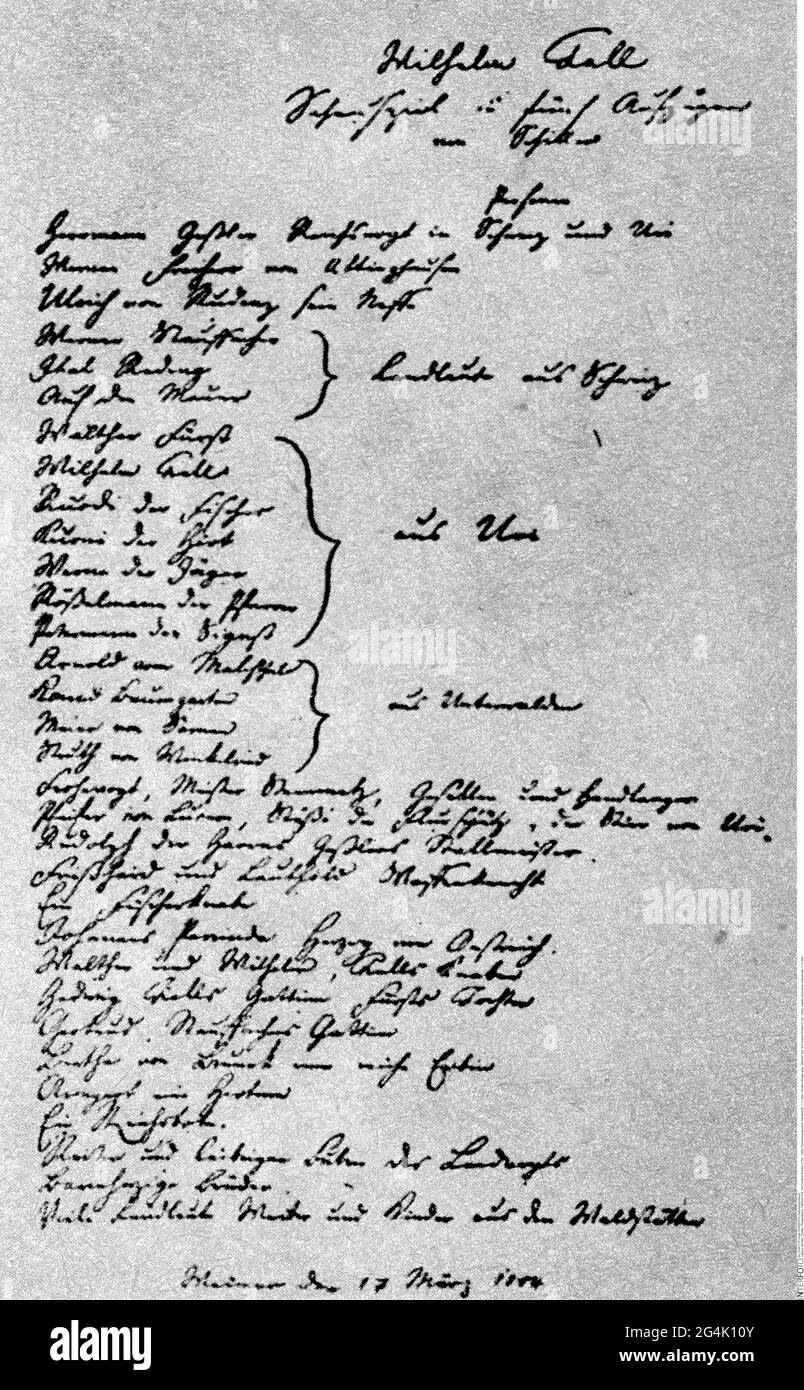 Wilhelm Tell
Schauspiel in fünf Aufzügen
von Schiller
Personen
Herrmann Geßler Reichsvogt in Schweiz und Uri
Werner Freiherr von Attinghausen
Ulrich von Rudenz sein Neffe
Werner Stauffacher
Itel Reding
Auf der Mauer
Landleute aus Schweiz
Walther Fürst
Wilhelm Tell
Ruodi der Fischer
Kuoni der Hirt
Werni der Jäger
Rößelmann der Pfarrer
Petermann der Sigrist
aus Uri
Arnold vom Melchthal
Konrad Baumgarten
Meier von Sarnen
Struth von Winkelried
aus Unterwalden
Frohnvogt, Meister Steinmetz, Gesellen und Handlanger
Pfeifer von Luzern, Stüßi der Flurschütz, der Stier von Uri.
Rudolph der Harras Geßlers Stallmeister.
Frießhard und Leuthold Waffenknechte
Ein Fischerknabe
Johannes Parricida Herzog von Oestreich.
Walther und Wilhelm, Tells Knaben
Hedwig Tells Gattin Fürsts Tochter
Gertrud, Stauffachers Gattin
Bertha von Bruneck eine reiche Erbin
Armgart eine Hirtin
Ein Reichsbote.
Reiter und des Landvogts
Barmherzige Brüder
Viele Landleute Weiber und Kinder aus den Waldstätten
Weimar den 17 März 1804
alamy
alamy
INTERFOTO
alamy
Image ID: 2G4K10Y
www.alamy.com